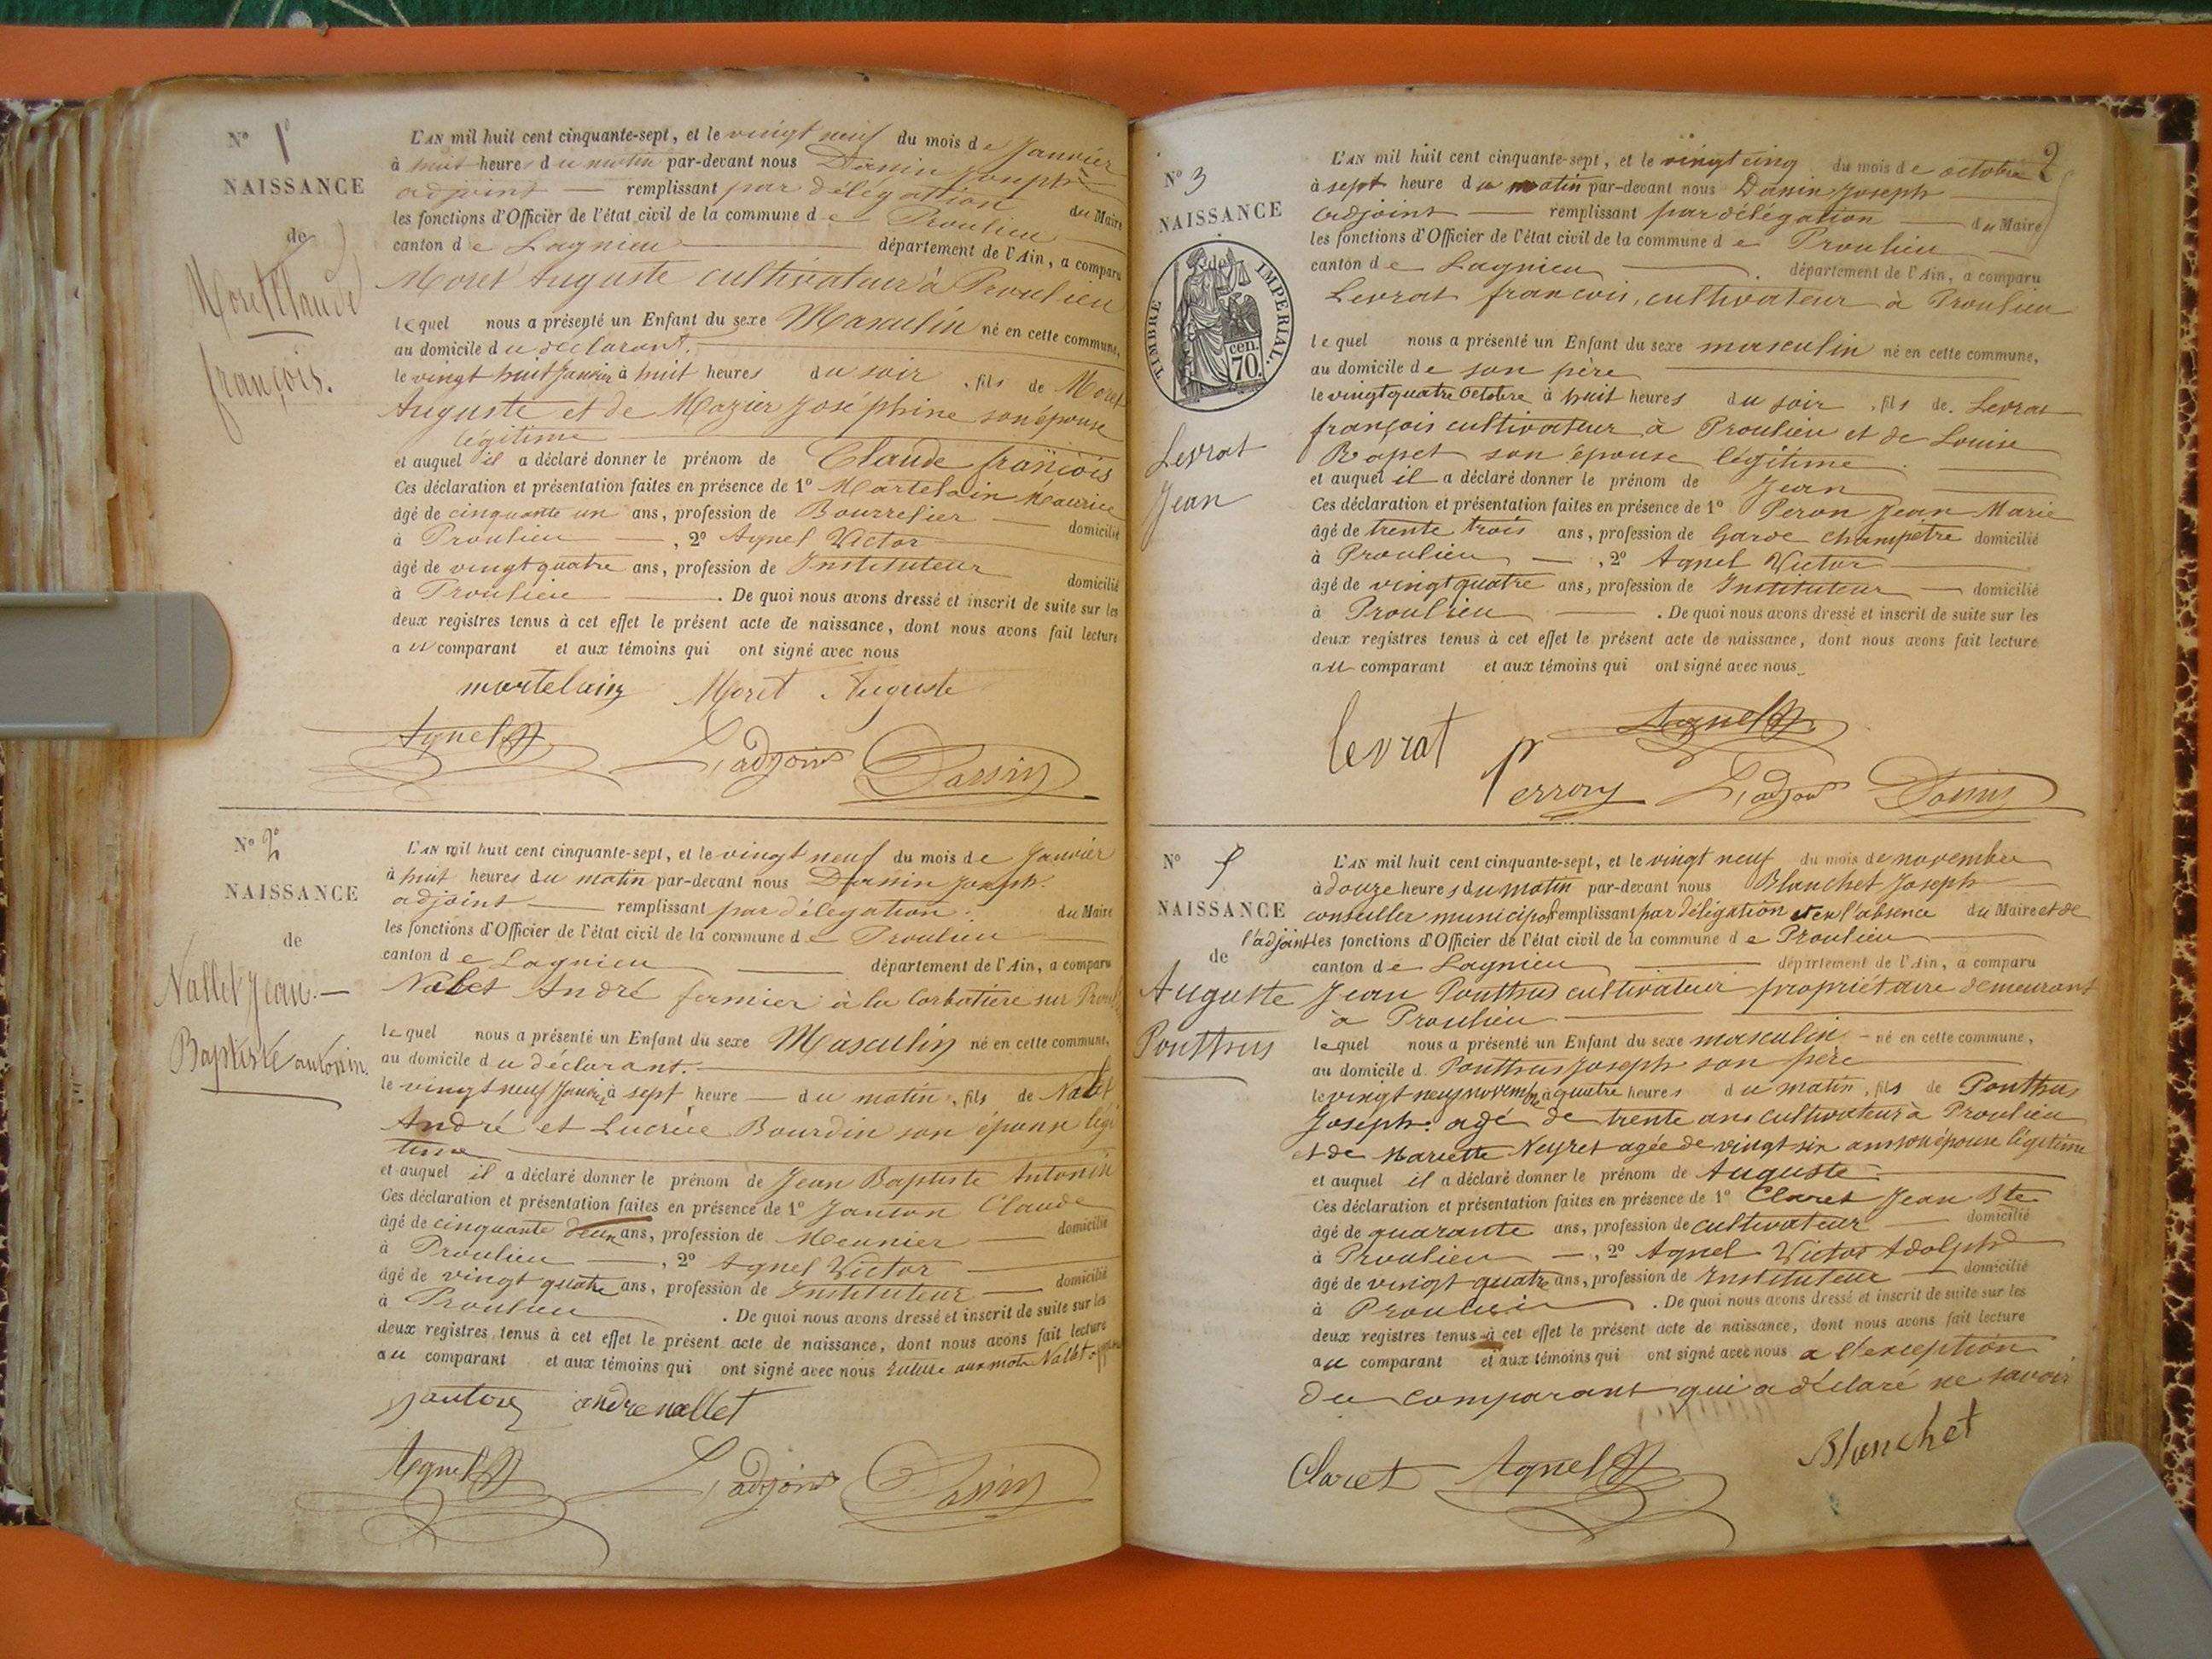 N° 1
NAISSANCE
de
Moret Claude
françois.
L'AN mil huit cent cinquante-sept, et le vingt neuf du mois de Janvier
à huit heures du matin par-devant nous Danin Joseph
adjoint — remplissant par délégation du Maire
les fonctions d'Officier de l'état civil de la commune de Proulieu
canton de Lagnieu — département de l'Ain, a comparu
Moret Auguste cultivateur à Proulieu
lequel nous a présenté un Enfant du sexe Masculin né en cette commune,
au domicile du déclarant.
le vingt huit Janvier à huit heures du soir, fils de Moret
Auguste et de Mazier Joséphine son épouse
légitime
et auquel il a déclaré donner le prénom de Claude françois
Ces déclaration et présentation faites en présence de 1° Martelain Maurice
âgé de cinquante un ans, profession de Bourrelier — domicilié
à Proulieu —, 2° Agnel Victor
âgé de vingt quatre ans, profession de Instituteur domicilié
à Proulieu — . De quoi nous avons dressé et inscrit de suite sur les
deux registres tenus à cet effet le présent acte de naissance, dont nous avons fait lecture
au comparant et aux témoins qui ont signé avec nous
martelain Moret Auguste
Agnel L'adjoint Dannin
N° 2
NAISSANCE
de
Nallet Jean —
Baptiste antonin.
L'AN mil huit cent cinquante-sept, et le vingt neuf du mois de Janvier
à huit heures du matin par-devant nous Dannin Joseph.
adjoint — remplissant par délégation. du Maire
les fonctions d'Officier de l'état civil de la commune de Proulieu
canton de Lagnieu — département de l'Ain, a comparu
Nalet André fermier à la Corbatière sur Proul
lequel nous a présenté un Enfant du sexe Masculin né en cette commune,
au domicile du déclarant.
le vingt neuf Janvier à sept heure — du matin, fils de Nalet
André et Lucrèce Bourdin son épouse légi
time
et auquel il a déclaré donner le prénom de Jean Baptiste Antonin
Ces déclaration et présentation faites en présence de 1° Janton Claude
âgé de cinquante deux ans, profession de Meunier — domicilié
à Proulieu —, 2° Agnel Victor
âgé de vingt quatre ans, profession de Instituteur — domicilié
à Proulieu . De quoi nous avons dressé et inscrit de suite sur les
deux registres tenus à cet effet le présent acte de naissance, dont nous avons fait lecture
au comparant et aux témoins qui ont signé avec nous rature aux mots Nallet
janton andre nallet
Agnel L'adjoint Dannin
2
N° 3
NAISSANCE
de
TIMBRE IMPERIAL.
cen.
70.
Levrat
Jean
L'AN mil huit cent cinquante-sept, et le vingt cinq du mois de octobre
à sept heure du matin par-devant nous Danin Joseph
adjoint — remplissant par délégation — du Maire
les fonctions d'Officier de l'état civil de la commune de Proulieu
canton de Lagnieu — . département de l'Ain, a comparu
Levrat françois, cultivateur à Proulieu
lequel nous a présenté un Enfant du sexe masculin né en cette commune,
au domicile de son père
le vingt quatre octobre à huit heures du soir, fils de Levrat
françois cultivateur à Proulieu et de Louise
Rapet son épouse légitime
et auquel il a déclaré donner le prénom de Jean
Ces déclaration et présentation faites en présence de 1° Peron Jean Marie
âgé de trente trois ans, profession de Garde champêtre domicilié
à Proulieu —, 2° Agnel Victor
âgé de vingt quatre ans, profession de Instituteur — domicilié
à Proulieu — . De quoi nous avons dressé et inscrit de suite sur les
deux registres tenus à cet effet le présent acte de naissance, dont nous avons fait lecture
au comparant et aux témoins qui ont signé avec nous
levrat Agnel
Perrony L'adjoint Dannin
N°
NAISSANCE
de
Auguste
Pouthus
L'AN mil huit cent cinquante-sept, et le vingt neuf du mois de novembre
à douze heures du matin par-devant nous Blanchet Joseph
conseiller municipal remplissant par délégation et en l'absence du Maire et de
l'adjoint les fonctions d'Officier de l'état civil de la commune de Proulieu
canton de Lagnieu — département de l'Ain, a comparu
Jean Pouthus cultivateur propriétaire demeurant
à Proulieu
lequel nous a présenté un Enfant du sexe masculin — né en cette commune,
au domicile d. Pouthus Joseph son père
le vingt neuf novembre à quatre heures du matin, fils de Pouthus
Joseph. agé de trente ans cultivateur à Proulieu
et de Mariette Neyret agée de vingt six ans son épouse légitime
et auquel il a déclaré donner le prénom de Auguste
Ces déclaration et présentation faites en présence de 1° Claret Jean Bte
âgé de quarante ans, profession de cultivateur — domicilié
à Proulieu —, 2° Agnel Victor Adolphe
âgé de vingt quatre ans, profession de Instituteur — domicilié
à Proulieu . De quoi nous avons dressé et inscrit de suite sur les
deux registres tenus à cet effet le présent acte de naissance, dont nous avons fait lecture
au comparant et aux témoins qui ont signé avec nous a l'exception
du comparant qui a déclaré ne savoir
Claret Agnel Blanchet